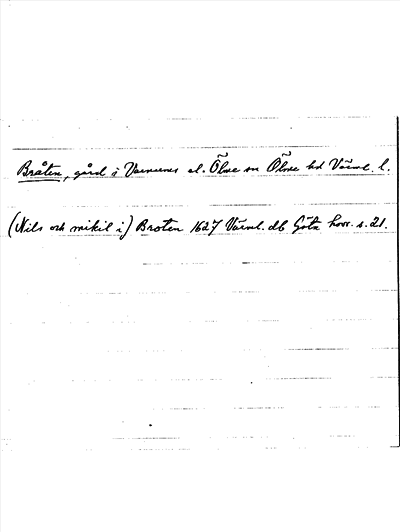 Bråten, gård i Varnums el. Ölme sn Ölme hd Värml. l.
(Nils och mikil i) Broten 1627 Värml. db Göta hovr. s. 21.